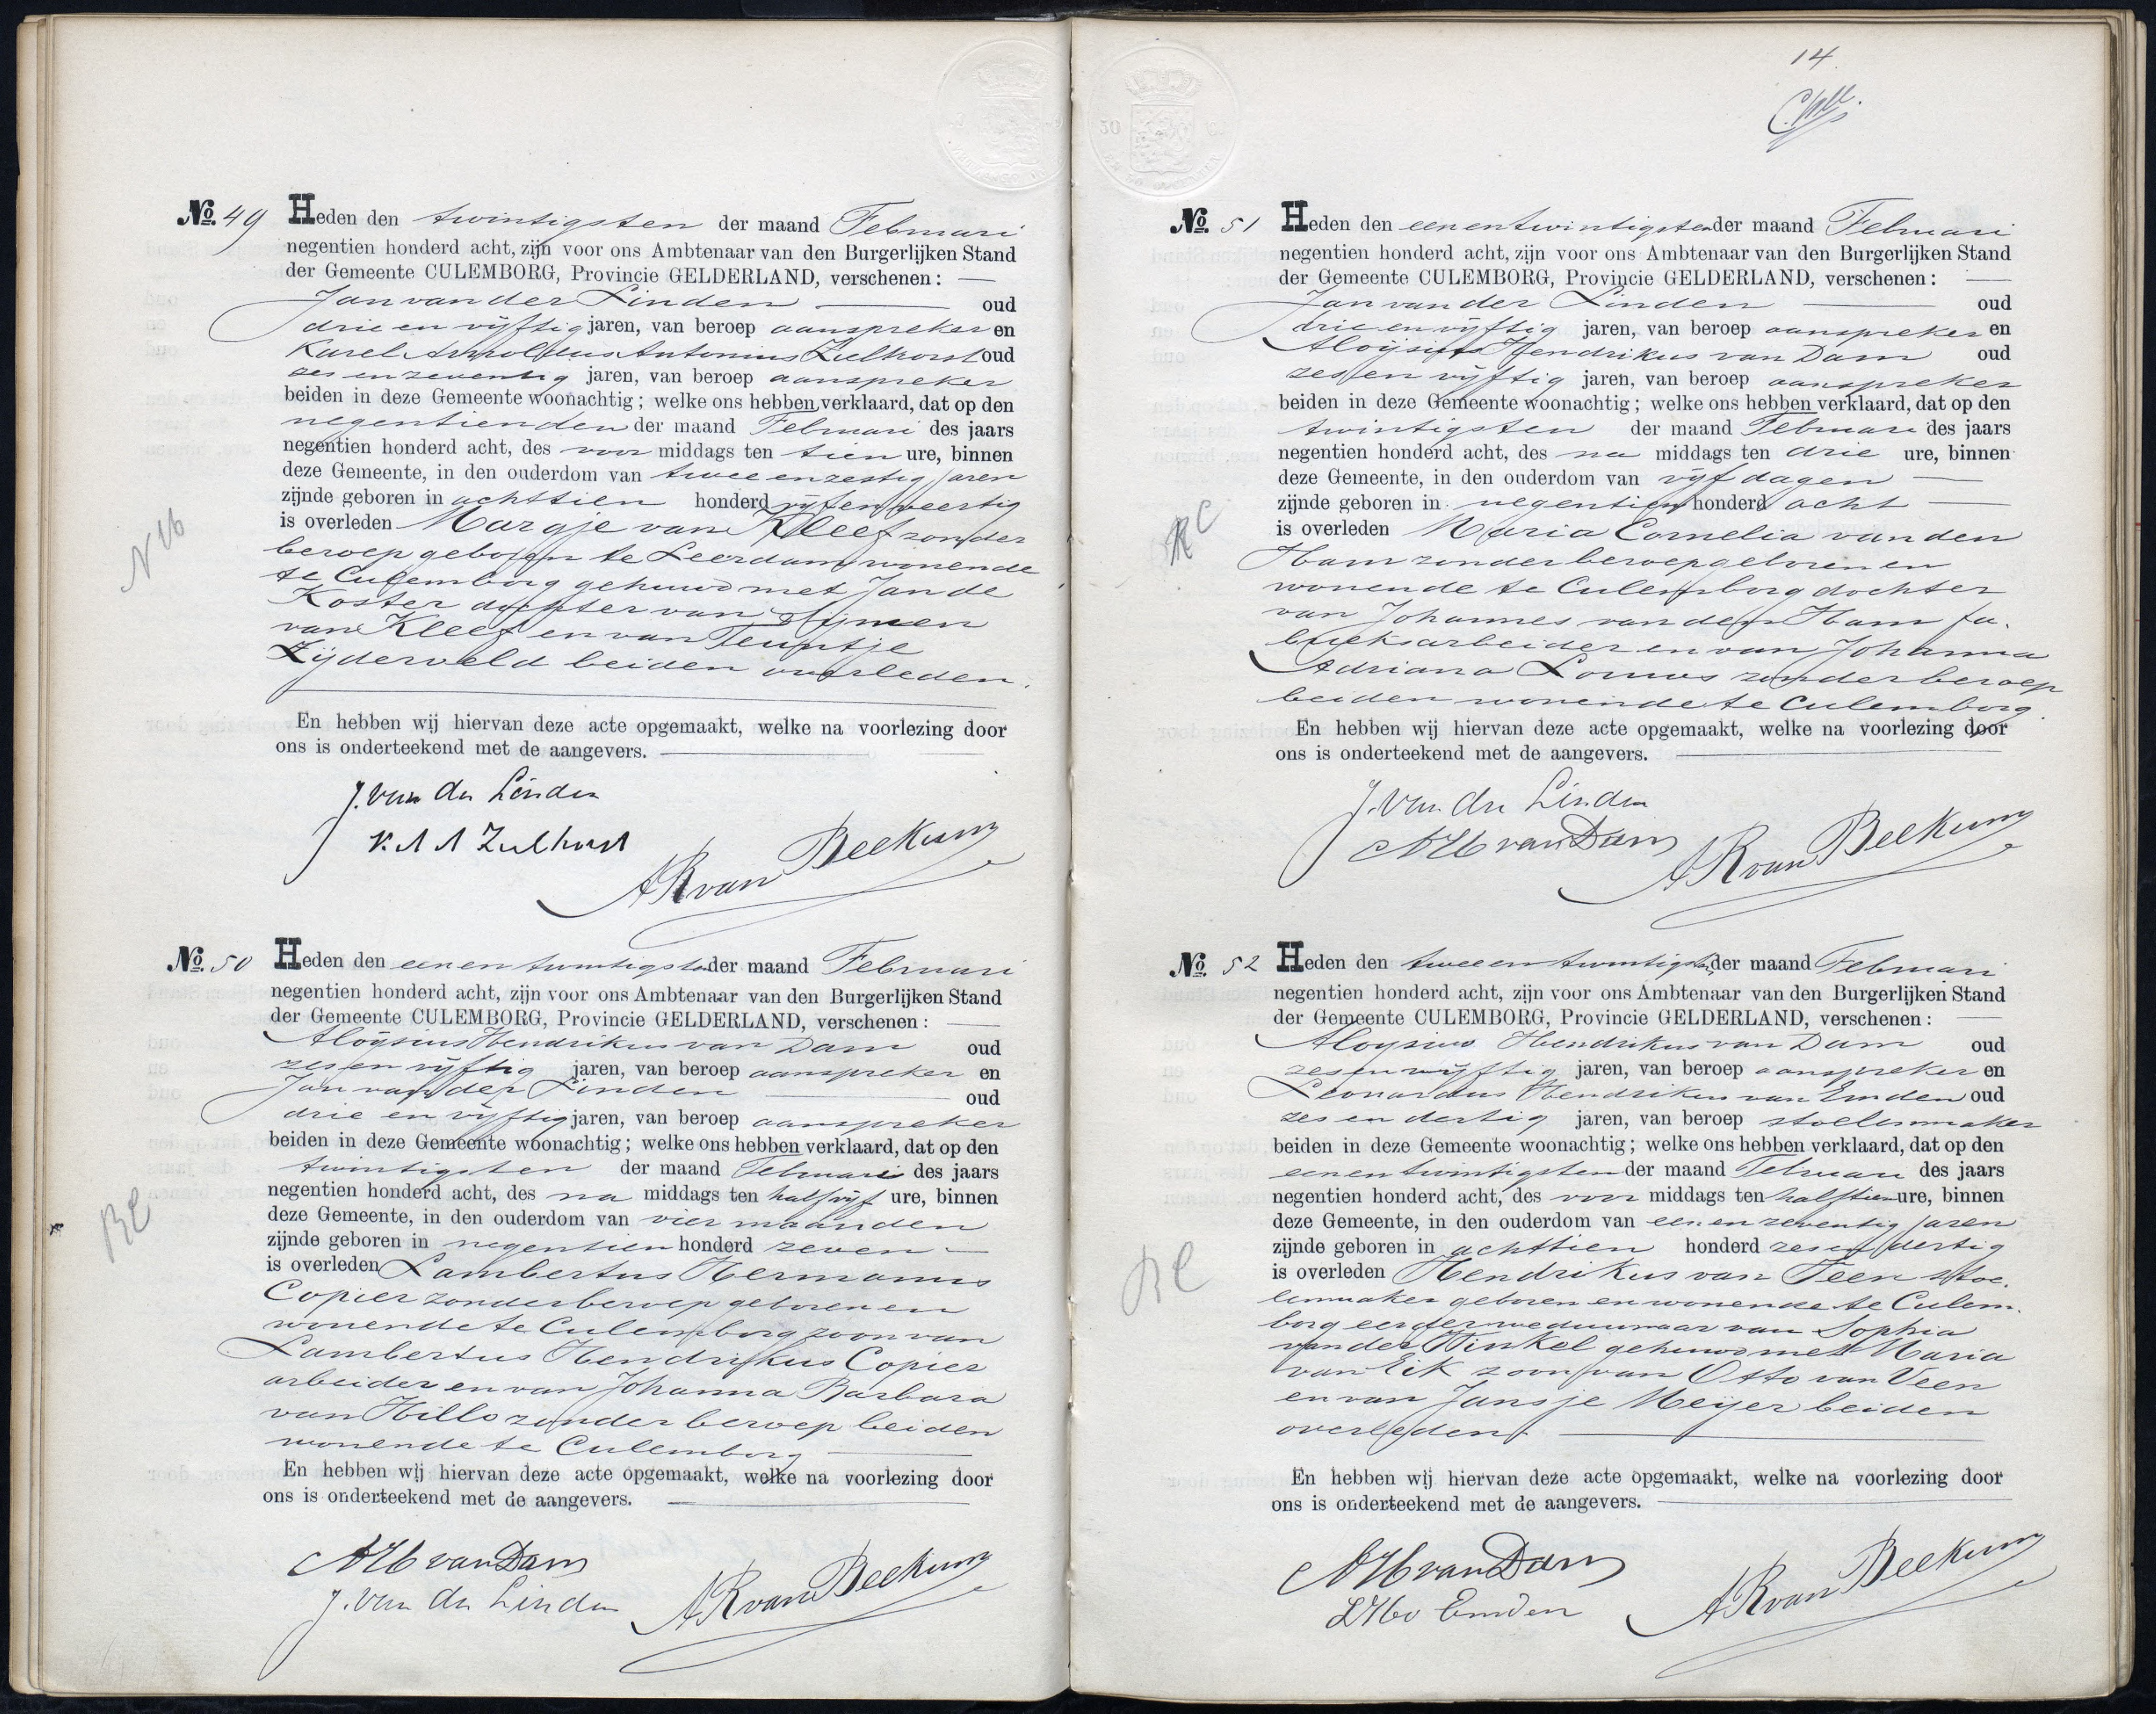 No. 49 Heden den twintigsten der maand Februari
negentien honderd acht, zijn voor ons Ambtenaar van den Burgerlijken Stand
der Gemeente CULEMBORG, Provincie GELDERLAND, verschenen:
Jan van der Linden oud
drie en vijftig jaren, van beroep aanspreker en
Karel Arnoldus Antonius Zulhorst oud
zes en zeventig jaren, van beroep aanspreker
beiden in deze Gemeente woonachtig; welke ons hebben verklaard, dat op den
negentienden der maand Februari des jaars
negentien honderd acht, des voor middags ten tien ure, binnen
deze Gemeente, in den ouderdom van twee en zestig jaren
zijnde geboren in achttien honderd vijf en veertig
is overleden Margje van Kleef zonder
beroep geboren te Leerdam wonende
te Culemborg gehuwd met Jan de
Koster dochter van Sijmen
van Kleef en van Teuntje
Zijderveld beiden overleden.
En hebben wij hiervan deze acte opgemaakt, welke na voorlezing door
ons is onderteekend met de aangevers.
J. van der Linden
K A A Zulhorst
AR van Beekum
NH
No. 50 Heden den een en twintigsten der maand Februari
negentien honderd acht, zijn voor ons Ambtenaar van den Burgerlijken Stand
der Gemeente CULEMBORG, Provincie GELDERLAND, verschenen:
Aloijsius Hendrikus van Dam oud
zes en vijftig jaren, van beroep aanspreker en
Jan van der Linden oud
drie en vijftig jaren, van beroep aanspreker
beiden in deze Gemeente woonachtig; welke ons hebben verklaard, dat op den
twintigsten der maand Februari des jaars
negentien honderd acht, des na middags ten half vijf ure, binnen
deze Gemeente, in den ouderdom van vier maanden
zijnde geboren in negentien honderd zeven
is overleden Lambertus Hermanus
Copier zonder beroep geboren en
wonende te Culemborg zoon van
Lambertus Hendrikus Copier
arbeider en van Johanna Barbara
van Hillo zonder beroep beiden
wonende te Culemborg
En hebben wij hiervan deze acte opgemaakt, welke na voorlezing door
ons is onderteekend met de aangevers.
AH van Dam
J. van der Linden
AR van Beekum
RC
14
No. 51 Heden den een en twintigsten der maand Februari
negentien honderd acht, zijn voor ons Ambtenaar van den Burgerlijken Stand
der Gemeente CULEMBORG, Provincie GELDERLAND, verschenen:
Jan van der Linden oud
drie en vijftig jaren, van beroep aanspreker en
Aloijsius Hendrikus van Dam oud
zes en vijftig jaren, van beroep aanspreker
beiden in deze Gemeente woonachtig; welke ons hebben verklaard, dat op den
twintigsten der maand Februari des jaars
negentien honderd acht, des na middags ten drie ure, binnen
deze Gemeente, in den ouderdom van vijf dagen
zijnde geboren in negentien honderd acht
is overleden Maria Cornelia van den
Ham zonder beroep geboren en
wonende te Culemborg dochter
van Johannes van den Ham fa-
brieksarbeider en van Johanna
Adriana Louws zonder beroep
beiden wonende te Culemborg.
En hebben wij hiervan deze acte opgemaakt, welke na voorlezing door
ons is onderteekend met de aangevers.
J. van der Linden
AH van Dam
AR van Beekum
RC
No. 52 Heden den twee en twintigsten der maand Februari
negentien honderd acht, zijn voor ons Ambtenaar van den Burgerlijken Stand
der Gemeente CULEMBORG, Provincie GELDERLAND, verschenen:
Aloysius Hendrikus van Dam oud
zes en vijftig jaren, van beroep aanspreker en
Leonardus Hendrikus van Emden oud
zes en dertig jaren, van beroep stoelenmaker
beiden in deze Gemeente woonachtig; welke ons hebben verklaard, dat op den
een en twintigsten der maand Februari des jaars
negentien honderd acht, des voor middags ten half tien ure, binnen
deze Gemeente, in den ouderdom van een en zeventig jaren
zijnde geboren in achttien honderd zes en dertig
is overleden Hendrikus van Veen stoe-
lenmaker geboren en wonende te Culem-
borg eerder weduwnaar van Sophia
van der Winkel gehuwd met Maria
van Eik zoon van Otto van Veen
en van Jansje Meijer beiden
overleden.
En hebben wij hiervan deze acte opgemaakt, welke na voorlezing door
ons is onderteekend met de aangevers.
AH van Dam
LH v Emden
AR van Beekum
RC